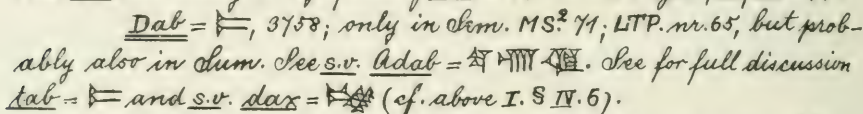 Dab = 𒋰, 3758; only in Sem. MS.² 71; LTP. nr. 65, but prob-
ably also in Sum. See s.v. Adab = . See for full discussion
tab = 𒋰 and s.v. dax = (cf. above I. § IV. 6).